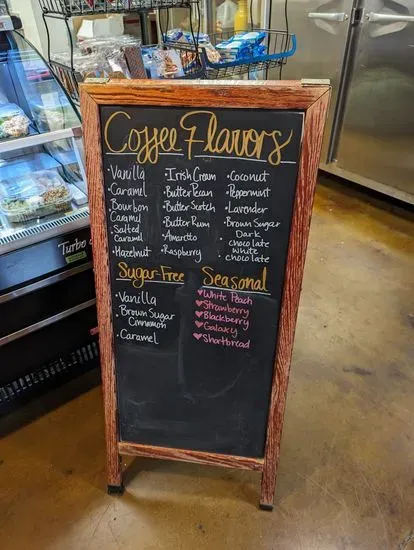 Coffee Flavors
•Vanilla
•Caramel
•Bourbon
Caramel
•Salted
Caramel
•Hazelnut
•Irish Cream
•Butter Pecan
•Butter Scotch
•Butter Rum
•Amaretto
•Raspberry
•Coconut
•Peppermint
•Lavender
•Brown Sugar
Dark
chocolate
white
chocolate
Sugar-Free
•Vanilla
•Brown Sugar
Cinnamon
•Caramel
Seasonal
♥White Peach
♥Strawberry
♥Blackberry
♥Galaxy
♥Shortbread
Turbo